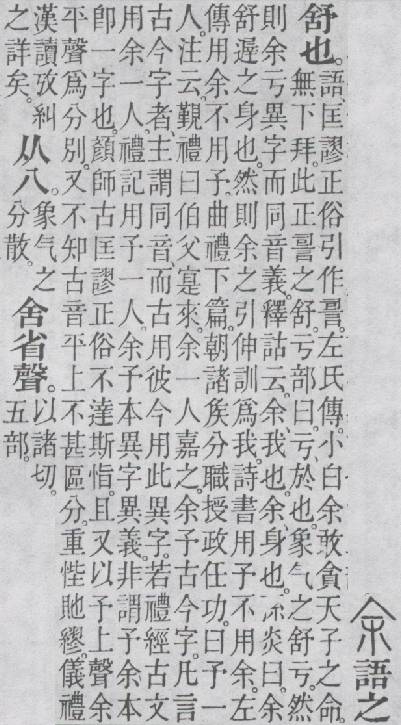 余語之
舒也。語、匡謬正俗引作䛐。左氏傳。小白余敢貪天子之命
無下拜。此正䛐之舒。亏部曰。亏、於也。象气之舒亏。然
則余亏異字而同音義。釋詁云。余、我也。余、身也。孫炎曰。余
舒遟之身也。然則余之引伸訓爲我。詩書用予不用余。左
傳用余不用予。曲禮下篇。朝諸矦分職授政任功。曰予一
人。注云。覲禮曰伯父寔來。余一人嘉之。余予古今字。凡言
古今字者、主謂同音。而古用彼今用此異字。若禮經古文
用余一人。禮記用予一人。余予本異字異義。非謂予余本
卽一字也。顏師古匡謬正俗不達斯恉。且又以予上聲余
平聲爲分別。又不知古音平上不甚區分。重悂貤繆。儀禮
漢讀攷糾
之詳矣。
从八。象气之
分散。
舍省聲。以諸切。
五部。